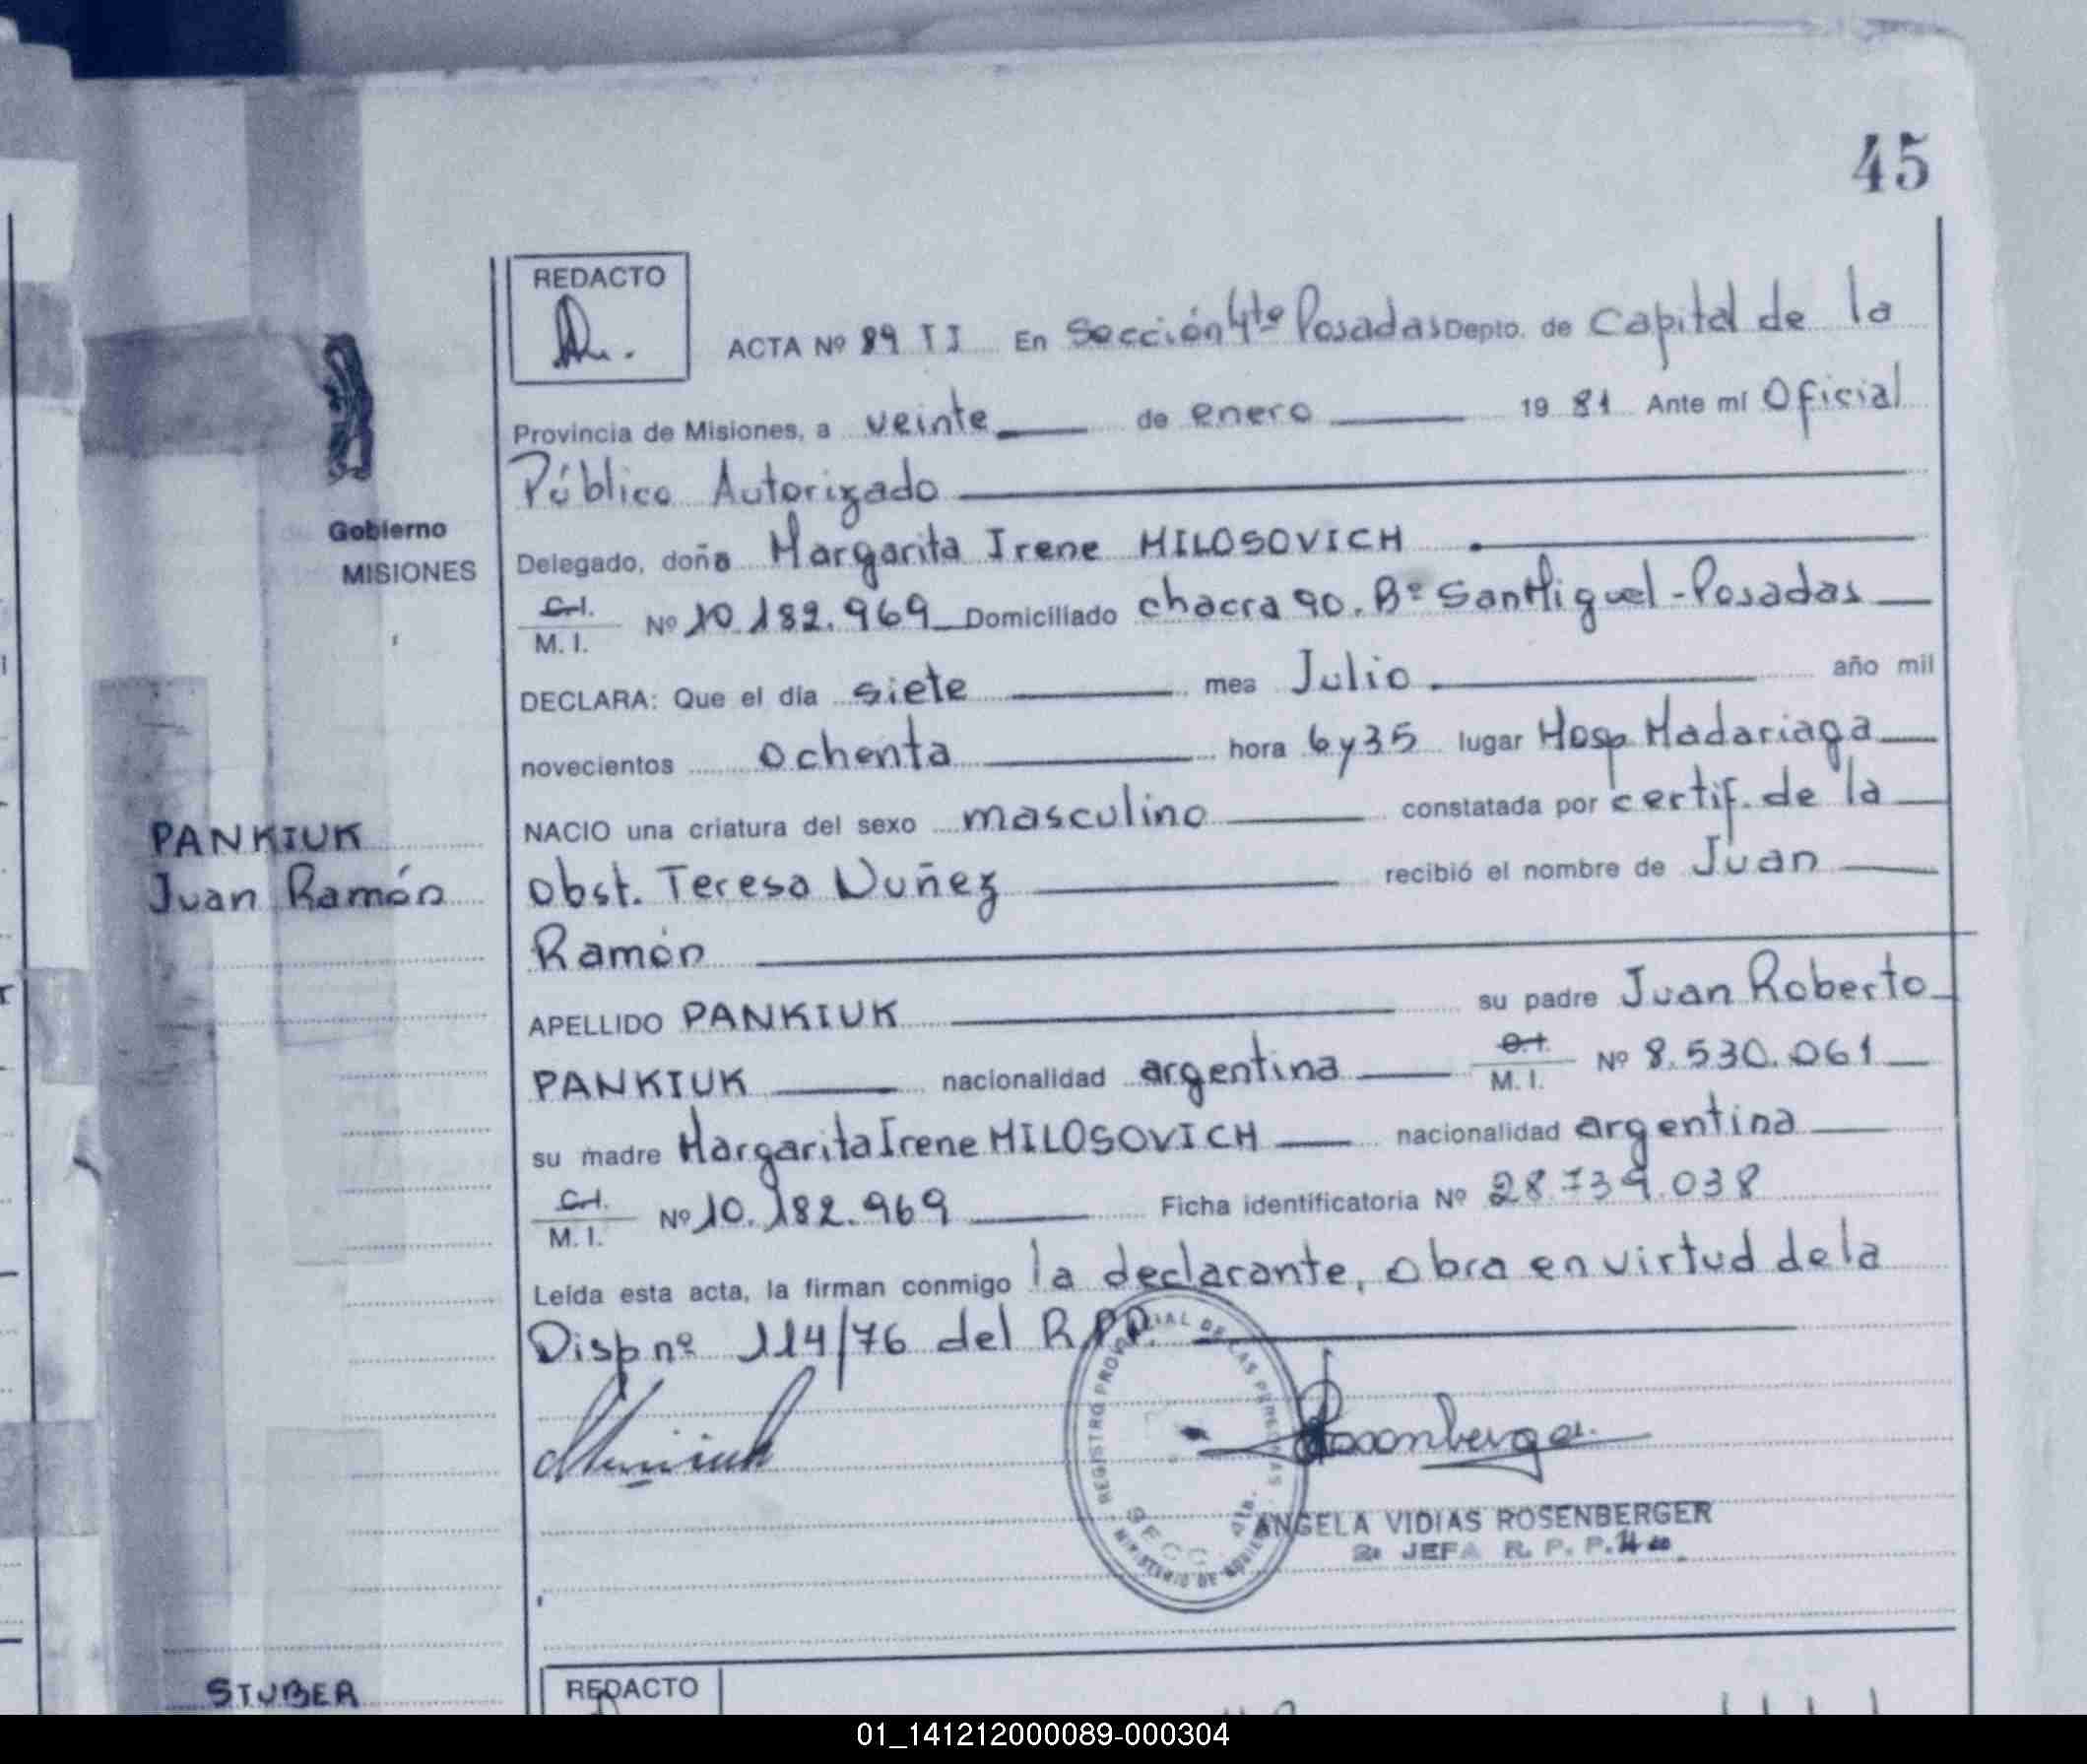 45
REDACTO
ACTA Nº 89 TI En Sección 4ta Posadas Depto. de Capital de la
Provincia de Misiones, a veinte de enero 1981 Ante mí Oficial
Público Autorizado
Gobierno
MISIONES
Delegado, doña Margarita Irene MILOSOVICH
C.I.
M. I. Nº 10.182.969 Domiciliado chacra 90. Bº San Miguel - Posadas
DECLARA: Que el día siete mes Julio año mil
novecientos ochenta hora 6 y 35 lugar Hosp. Madariaga
NACIO una criatura del sexo masculino constatada por certif. de la
PANKIUK
Juan Ramón
Obst. Teresa Nuñez recibió el nombre de Juan
Ramón
APELLIDO PANKIUK su padre Juan Roberto
PANKIUK nacionalidad argentina C.I.
M. I. Nº 8.530.061
su madre Margarita Irene MILOSOVICH nacionalidad argentina
C.I.
M. I. Nº 10.182.969 Ficha identificatoria Nº 28.739.038
Leída esta acta, la firman conmigo la declarante, obra en virtud de la
Disp nº 114/76 del R.P.P.
REGISTRO PROVINCIAL DE LAS PERSONAS
Rosenberger
ANGELA VIDIAS ROSENBERGER
JEFA R. P. P.
STUBER
REDACTO
01_141212000089-000304